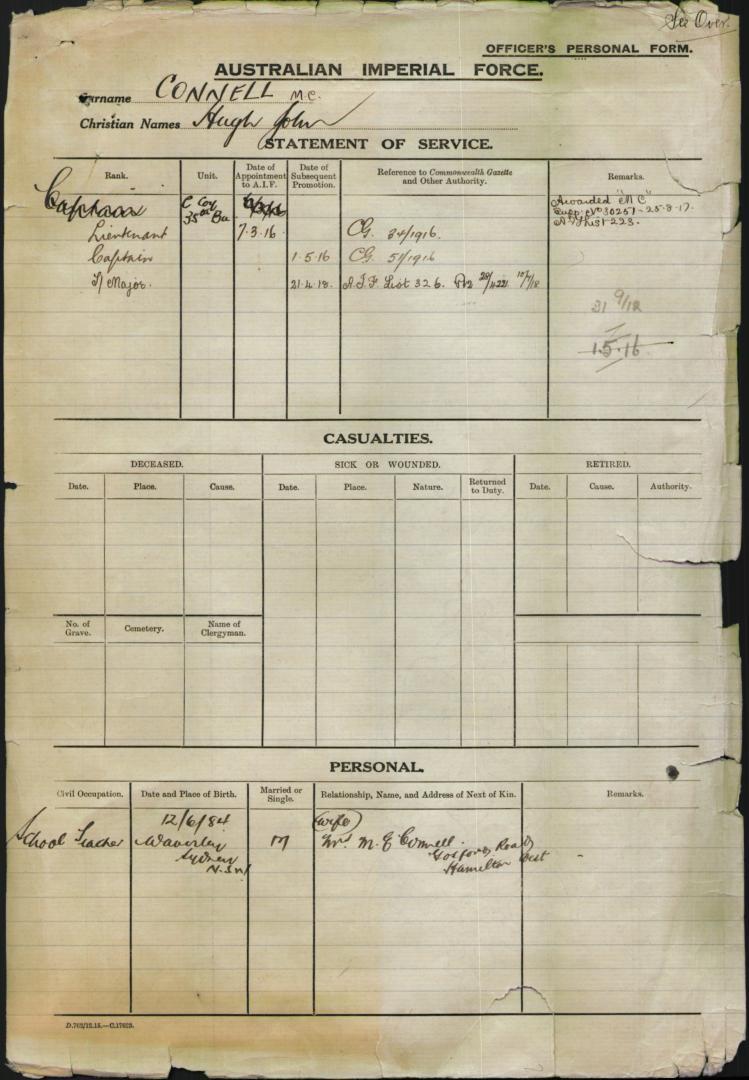 See Over.
OFFICER'S PERSONAL FORM.
AUSTRALIAN IMPERIAL FORCE.
Surname CONNELL M.C.
Christian Names Hugh John
STATEMENT OF SERVICE.
Rank. Unit. Date of Appointment to A.I.F. Date of Subsequent Promotion. Reference to Commonwealth Gazette and Other Authority. Remarks.
Captain C Coy 35th Bn Awarded "MC"
Supp. No 30251 - 25-8-17.
Lieutenant 7.3.16 CG. 34/1916. A.I.F. List 223.
Captain 1.5.16 CG. 51/1916
T/ Major. 21.4.18. A.I.F. List 326.
31 9/18
1.5.16
CASUALTIES.
DECEASED. SICK OR WOUNDED. RETIRED.
Date. Place. Cause. Date. Place. Nature. Returned to Duty. Date. Cause. Authority.
No. of Grave. Cemetery. Name of Clergyman.
PERSONAL.
Civil Occupation. Date and Place of Birth. Married or Single. Relationship, Name, and Address of Next of Kin. Remarks.
12/6/84 (wife)
School Teacher Waverley M Mrs M. E Connell.
Sydney Gosford Road
N.S.W Hamilton West
D.762/12.15.—C.17623.